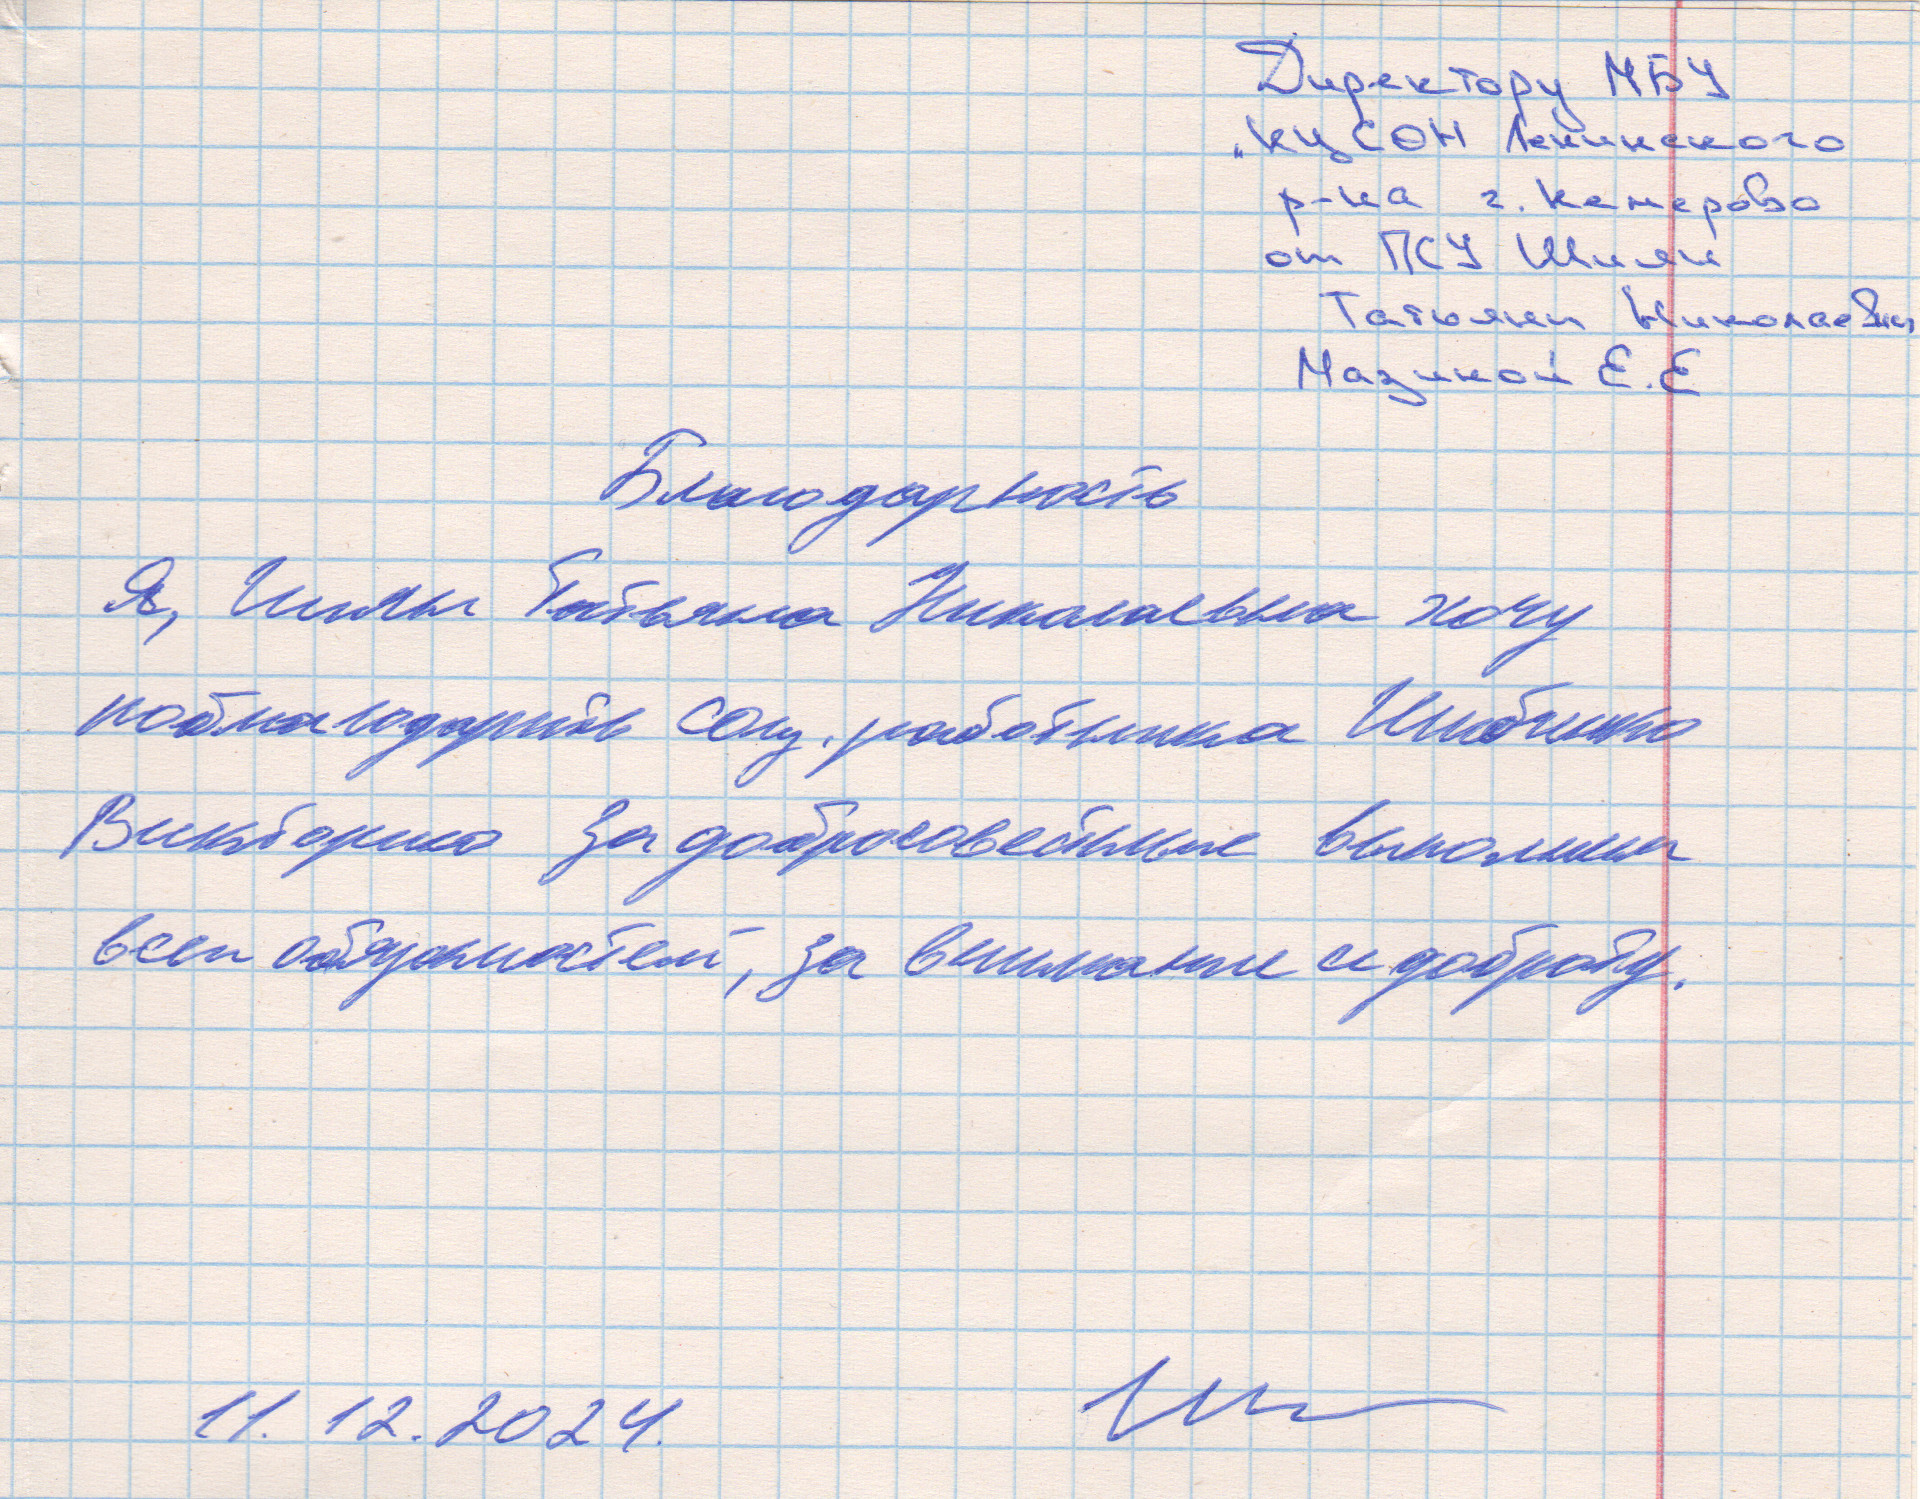 Директору МБУ
„КЦСОН Ленинского
р-на г. Кемерово
от ПСУ Шиян
Татьяны Николаевны
Мазикой Е.Е
Благодарность
Я, Шиян Татьяна Николаевна хочу
поблагодарить соц. работника
Викторию за добросовестное
всех обязанностей, за внимание и доброту.
11.12.2024.